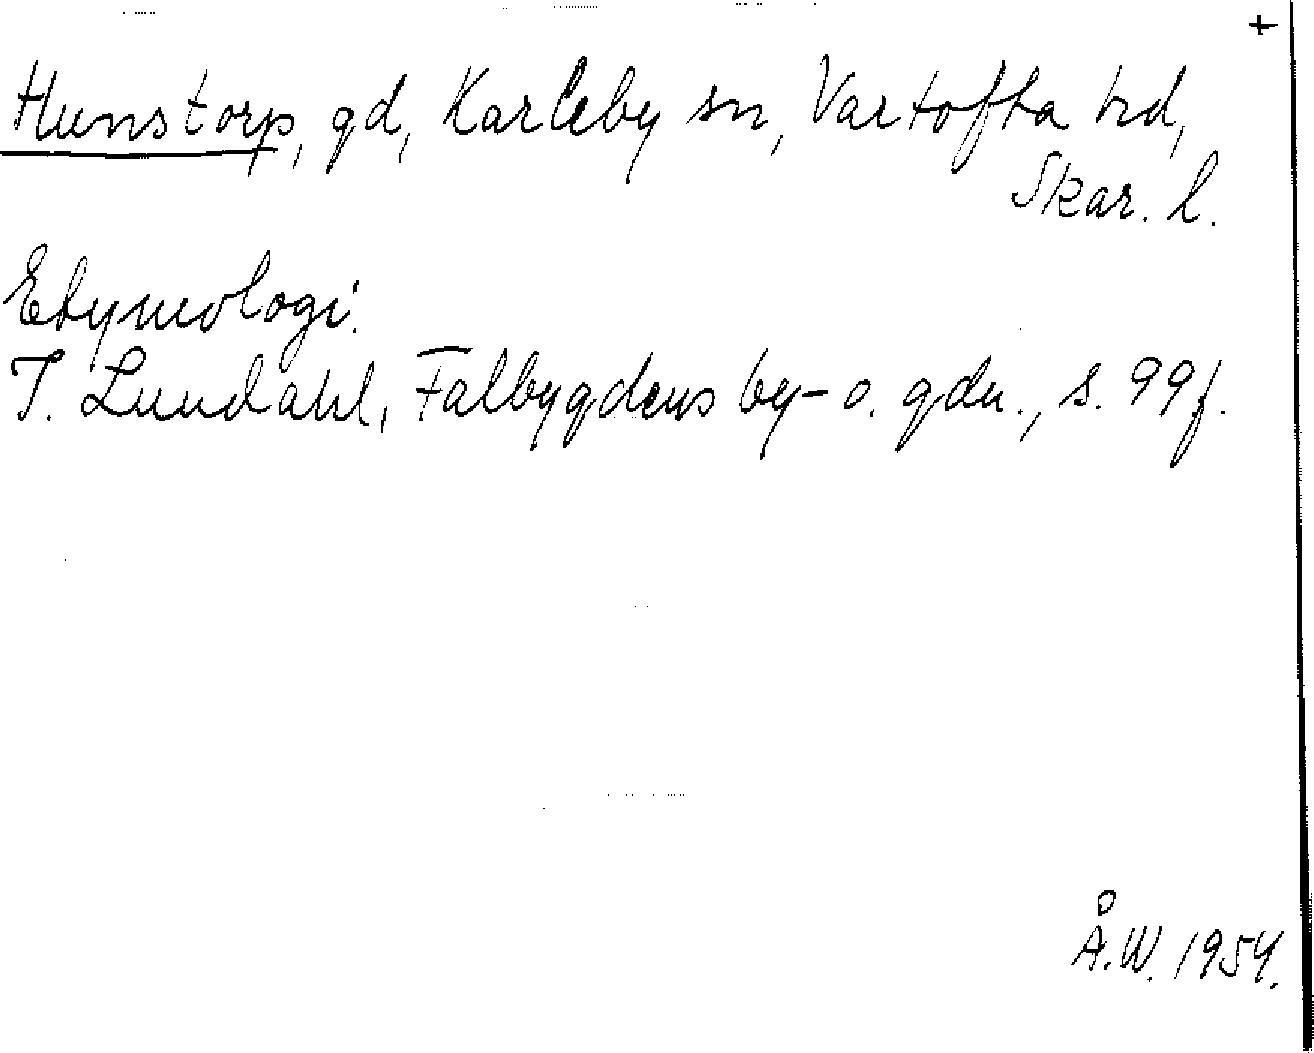 +
Hunstorp, gd, Karleby sn, Vartofta hd,
Skar. l.
Etymologi.
I. Lundahl, Falbygdens by- o. gdn., s. 99f.
Å.W. 1954.